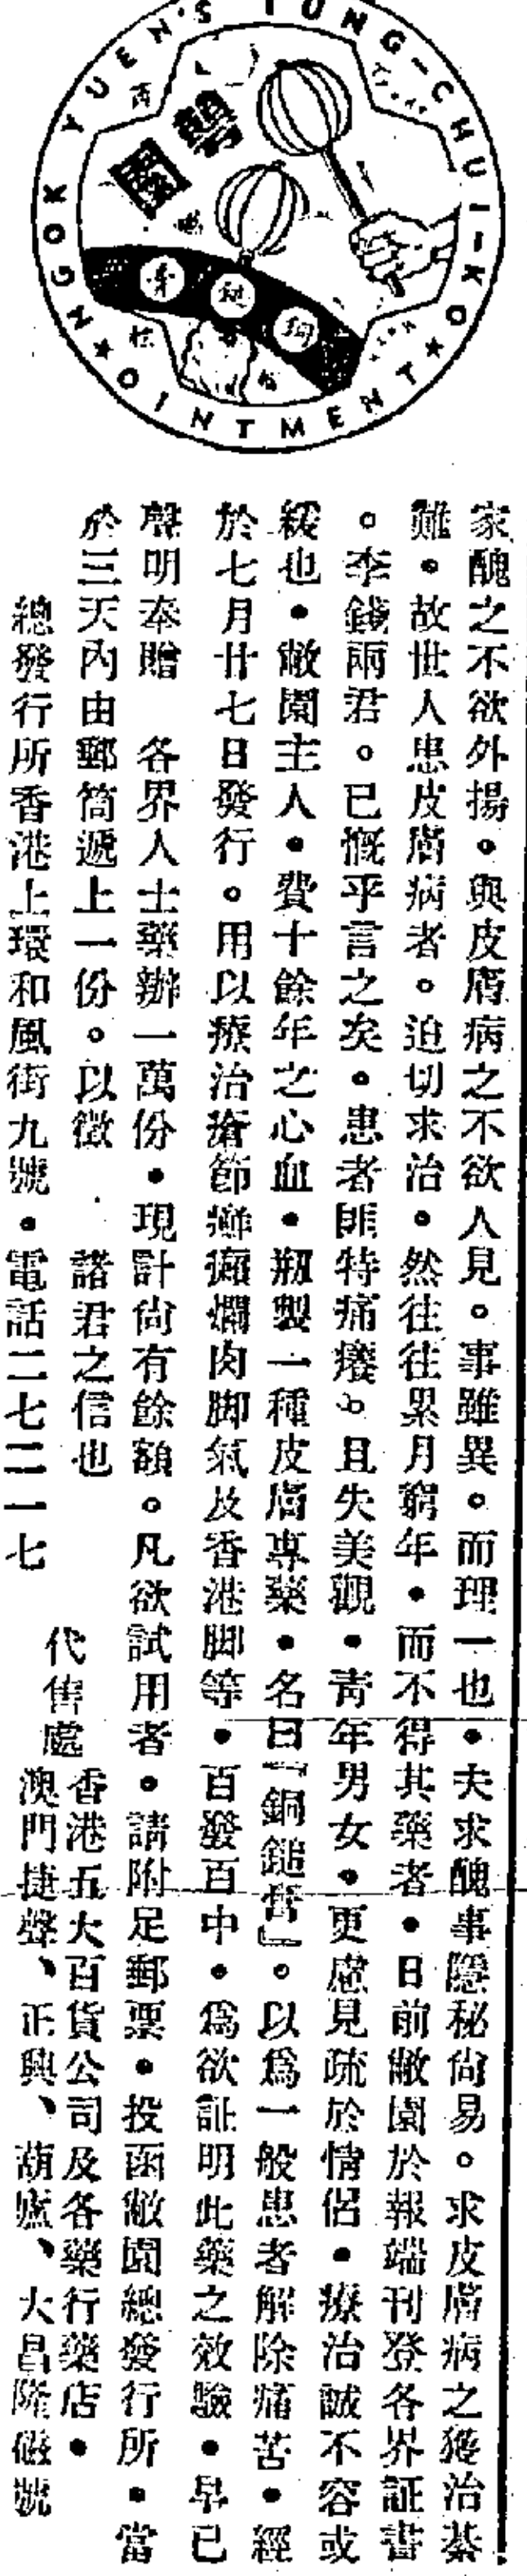 NGOK YUEN'S TUNG-CHUI-KO
OINTMENT
家醜之不欲外揚。與皮膚病之不欲人見。事雖異。而理一也。夫求醜事隱秘尙易。求皮膚病之獲治綦
難。故世人患皮膚病者。迫切求治。然往往累月窮年。而不得其藥者。日前敝園於報端刊登各界証書
。李錢兩君。已慨乎言之矣。患者匪特痛癢。且失美觀。靑年男女。更慮見疏於情侶。療治誠不容或
緩也。敝園主人。費十餘年之心血。硏製一種皮膚專藥。名曰「銅鎚膏」。以爲一般患者解除痛苦。經
於七月廿七日發行。用以療治瘡節癬癩爛肉脚氣及香港脚等。百發百中。爲欲証明此藥之效驗。早已
聲明奉贈 各界人士藥辦一萬份。現計尙有餘額。凡欲試用者。請附足郵票。投函敝園總發行所。當
於三天內由郵筒遞上一份。以徵 諸君之信也
總發行所香港上環和風街九號。電話二七二一七
代售處
香港五大百貨公司及各藥行藥店。
澳門捷聲、正興、葫蘆、大昌隆磁號